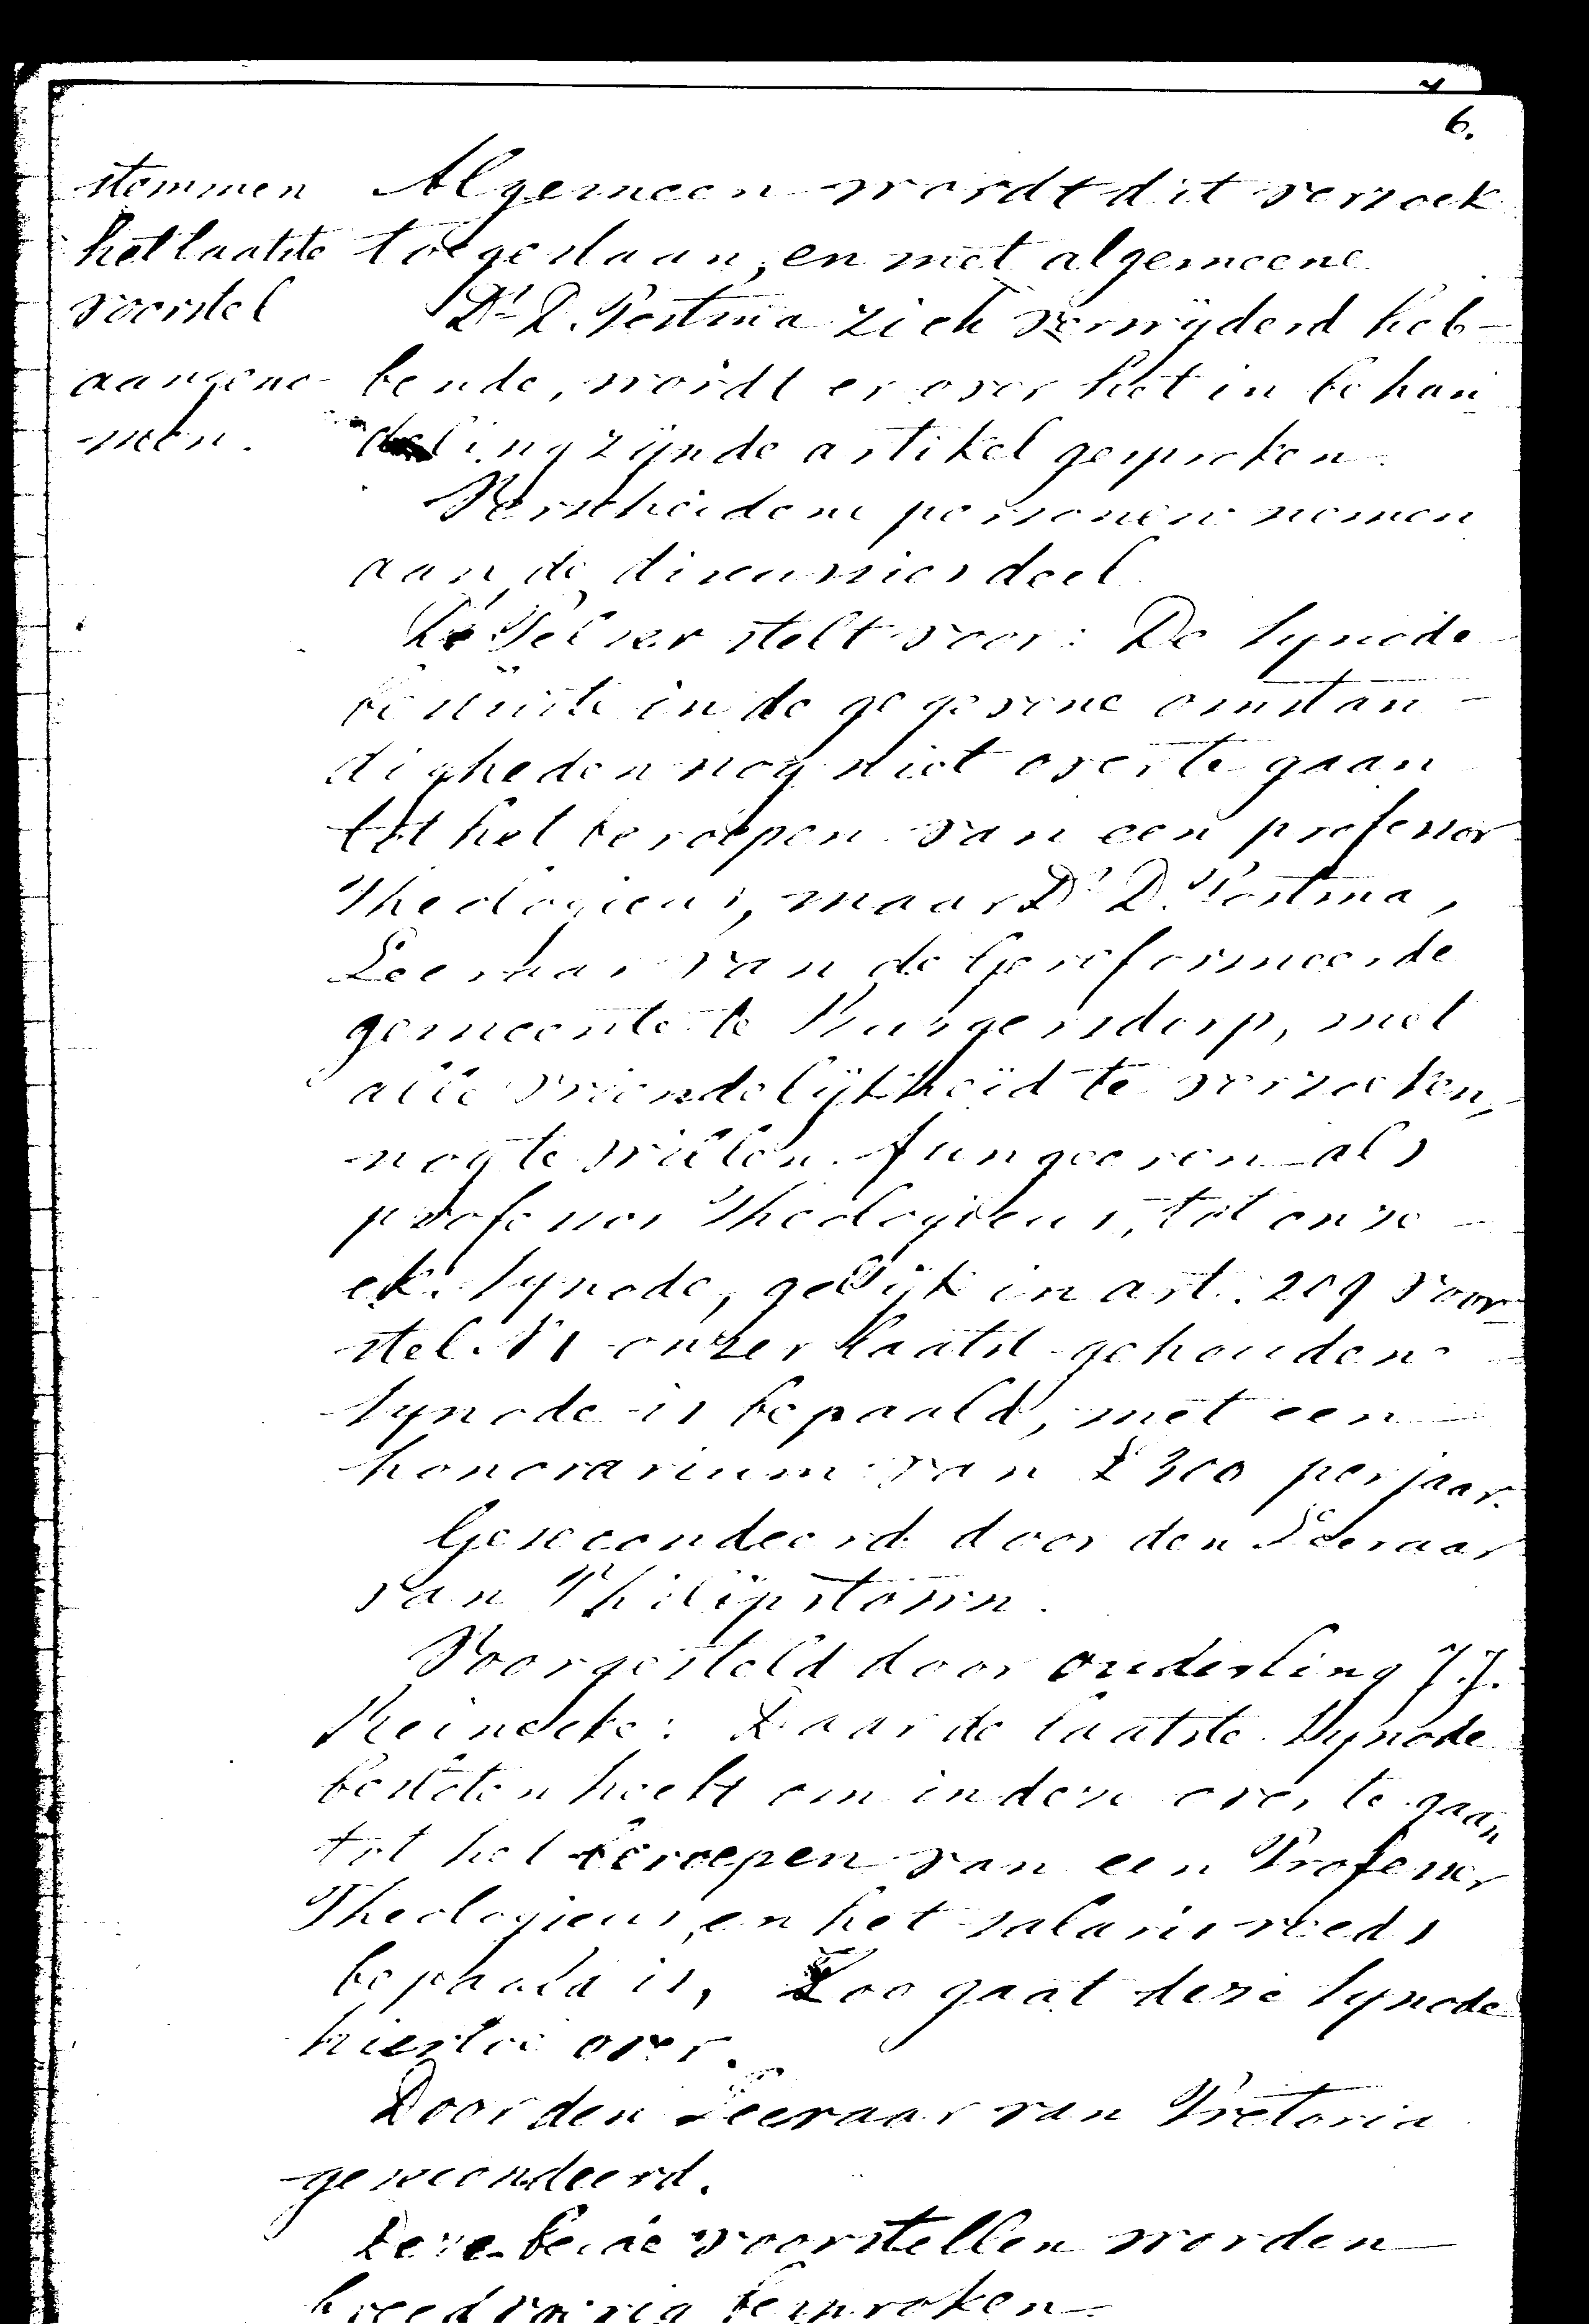 6.
stemmen
het laatste
voorstel
aangeno-
men.
Algemeen wordt dit verzoek
toegestaan, en met algemeene
Ds D. Postma zich verwijderd heb-
bende, wordt er over het in behan
deling zijnde artikel gesproken.
Verscheidene personen nemen
aan de discussies deel.
stelt voor: De Synode
besluite in de gegevene omstan-
digheden nog niet over te gaan
tot het beroepen van een professor
Theologicus, maar Ds D. Postma,
Leeraar van de Gereformeerde
gemeente te Burgersdorp, met
alle vriendelijkheid te verzoeken,
nog te willen fungeeren als
professor Theologicus, tot onze
ek. Synode, gelijk in art. 209 voor-
stel onzer laatst gehoudene
Synode is bepaald, met een
honorarium van £300 per jaar.
Gesecondeerd door den Leeraar
van Philipstown.
Voorgesteld door ouderling J.J.
Reinecke: Daar de laatste Synode
besloten heeft om in deze over te gaan
tot het beroepen van een Professor
Theologicus, en het salaris reeds
bepaald is, Zoo gaat deze Synode
hiertoe over.
Door den Leeraar van Pretoria
gesecondeerd.
Deze beide voorstellen worden
breedvoerig besproken.